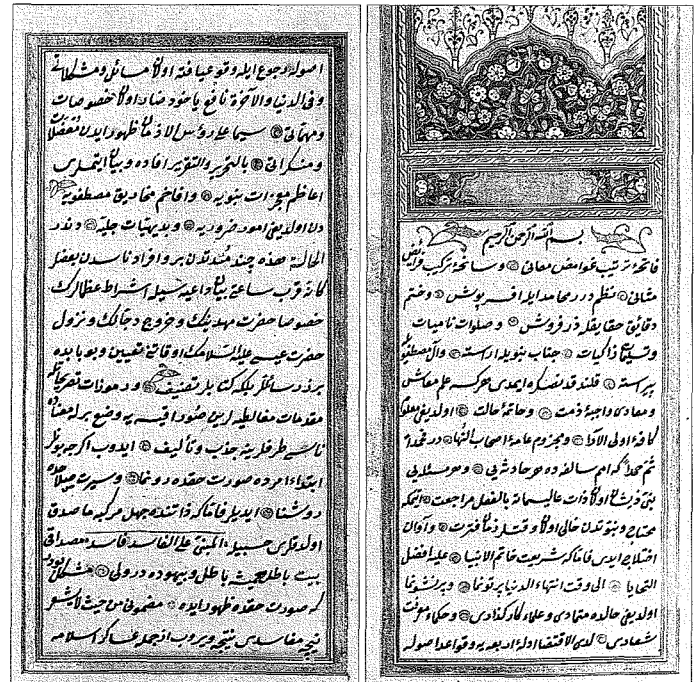 بسم الله الرحمن الرحيم
فاتحهٔ ترتيب غوامض معانى وسانحهٔ تركيب فرائض
مثانى نظم درر محامد ايله افسر پوش وختم
دقايق حقايقله در فروش وصلوات ناميات
وتسليمات ذاكيات جناب نبويه اراسته وآل مصطفويه
پيراسته قلندقدنصكره ايمدى هركسه علم معاش
ومعادى واجبهٔ ذمت وخاتمهٔ حالت اولديغى معلوم
كافهٔ اولى الآراء ومجزوم عامهٔ اصحاب النها در محمدا
ثم محمدا كه امم سالفه ده هر حادثه يى وهر مسئله يى
نبى ذيشان اولان ذات عاليسمانه بالفعل مراجعت ايتمكه
محتاج ونبوتدن خالى اولان وقتلر زمان فترت وآوان
اختلاج ايدى فاما كه شريعت خاتم الانبيا عليه افضل
التحايا الى وقت انتهاء الدنيا برتونما وپر نشو نما
اولديغى حالده متمادى وعلماء كار گذارى وحكماء معرفت
شعارى لدى الاقتضا ادلهٔ اربعه يه وقواعد اصوليه
اصوله رجوع ايله وقوعيافته اولان مسائل ومشكلاتى
وفى الدنيا والآخرة نافع ياخود ضار اولان خصوصات
ومهماتى سيما على رؤس الازمان ظهور ايدن معضلات
ومنكراتى بالتحرير والتقرير افاده وبيان ايتملرى
اعاظم معجزات نبويه وافاخم محاديق مصطفويه
دن اولديغى امور ضروريه وبديهيات جليه وندر
الحالة هذه چند مدتدنبرو افراد ناسدن بعضلر
كانه قرب ساعتى بيان داعيه سيله اشراط عظالرك
خصوصا حضرت مهدينك وخروج دجالك ونزول
حضرت عيسى عليه السلامك اوقاتنى تعيين وبو بابده
برر رسائللر بلكه كتابلر تصنيف ودمونات تصريحاتله
مقدمات مغالطه لرين صنور اقيسه يه وضع برله معناده
ناسى طرفلرينه جذب وتأليف ايدوب اكرچه بونلر
ابتداء امرده صورت حقده رونما وسيرت صلاحده
روشنا ايديلر فاما كه ذاتنده جهل مركبه ما صدق
اولدقلرى حسبيله المبنى على الفاسد فاسد مصداقى
بيت باطل هميشه باطل وبيهوده در ولى مشكل بود
كه صورت حقده ظهور ايده مضمونى من حيث لا يشعر
نيجه مفاسدى نتيجه ويروب از جمله عساكر اسلامه